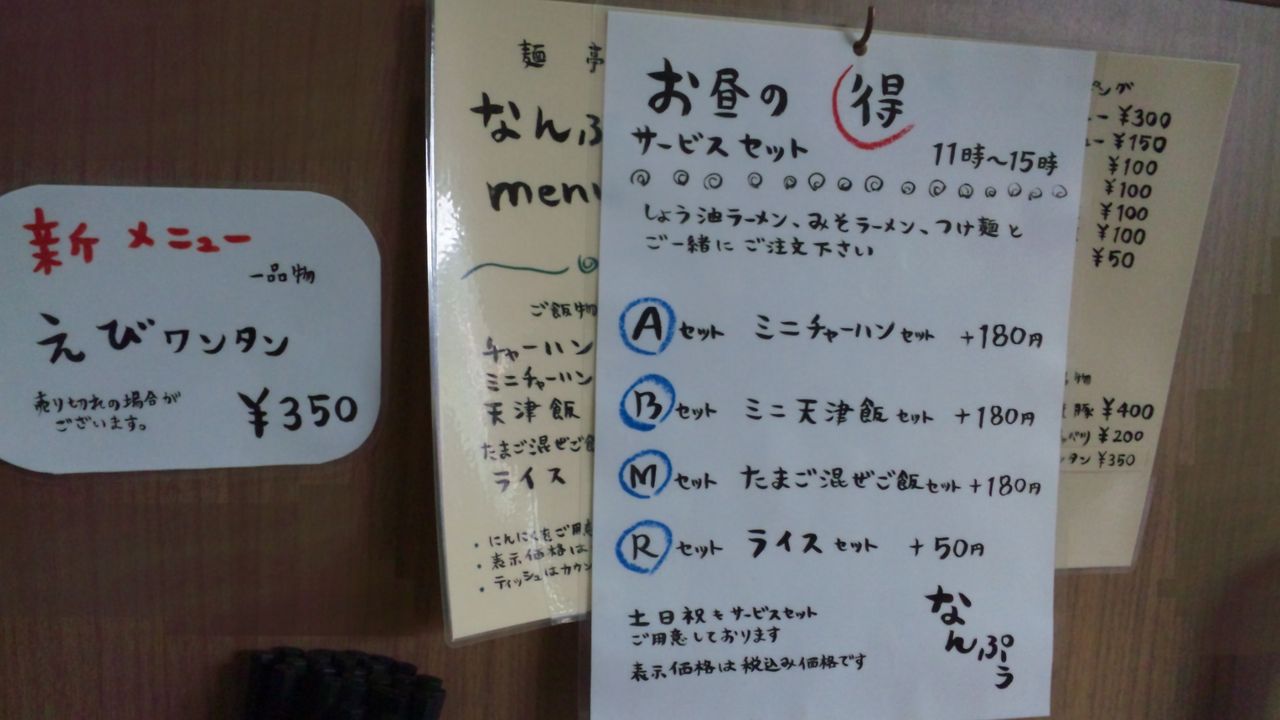 新メニュー
一品物
えびワンタン
売り切れの場合が
ございます。
¥350
麺 亭
なんぷ
menu
ご飯物
チャーハン
ミニチャーハン
天津飯
たまご混ぜご飯
ライス
・にんにくをご用意
・表示価格は
・ティッシュはカウン
お昼の 得
サービスセット
11時〜15時
しょう油ラーメン、みそラーメン、つけ麺と
ご一緒にご注文下さい
Aセット ミニチャーハンセット +180円
Bセット ミニ天津飯セット +180円
Mセット たまご混ぜご飯セット +180円
Rセット ライスセット +50円
土日祝もサービスセット
ご用意しております
表示価格は税込み価格です
なんぷう
ー ¥300
ュー ¥150
¥100
¥100
¥100
¥100
¥50
物
豚 ¥400
¥200
ンタン ¥350